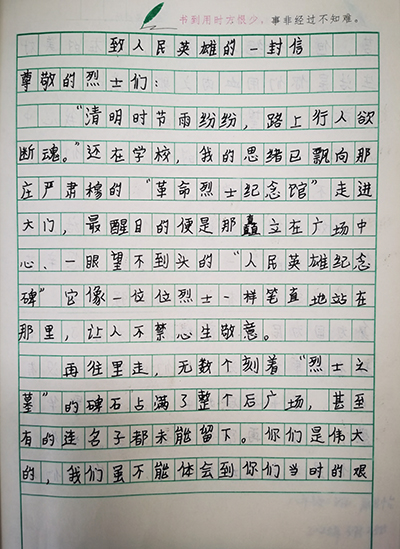 书到用时方恨少，事非经过不知难。
致人民英雄的一封信
尊敬的烈士们：
"清明时节雨纷纷，路上行人欲
断魂。"还在学校，我的思绪已飘向那
庄严肃穆的"革命烈士纪念馆"走进
大门，最醒目的便是那矗立在广场中
心、一眼望不到头的"人民英雄纪念
碑"它像一位位烈士一样笔直地站在
那里，让人不禁心生敬意。
再往里走，无数个刻着"烈士之
墓"的碑石占满了整个后广场，甚至
有的连名子都未能留下。你们是伟大
的，我们虽不能体会到你们当时的艰